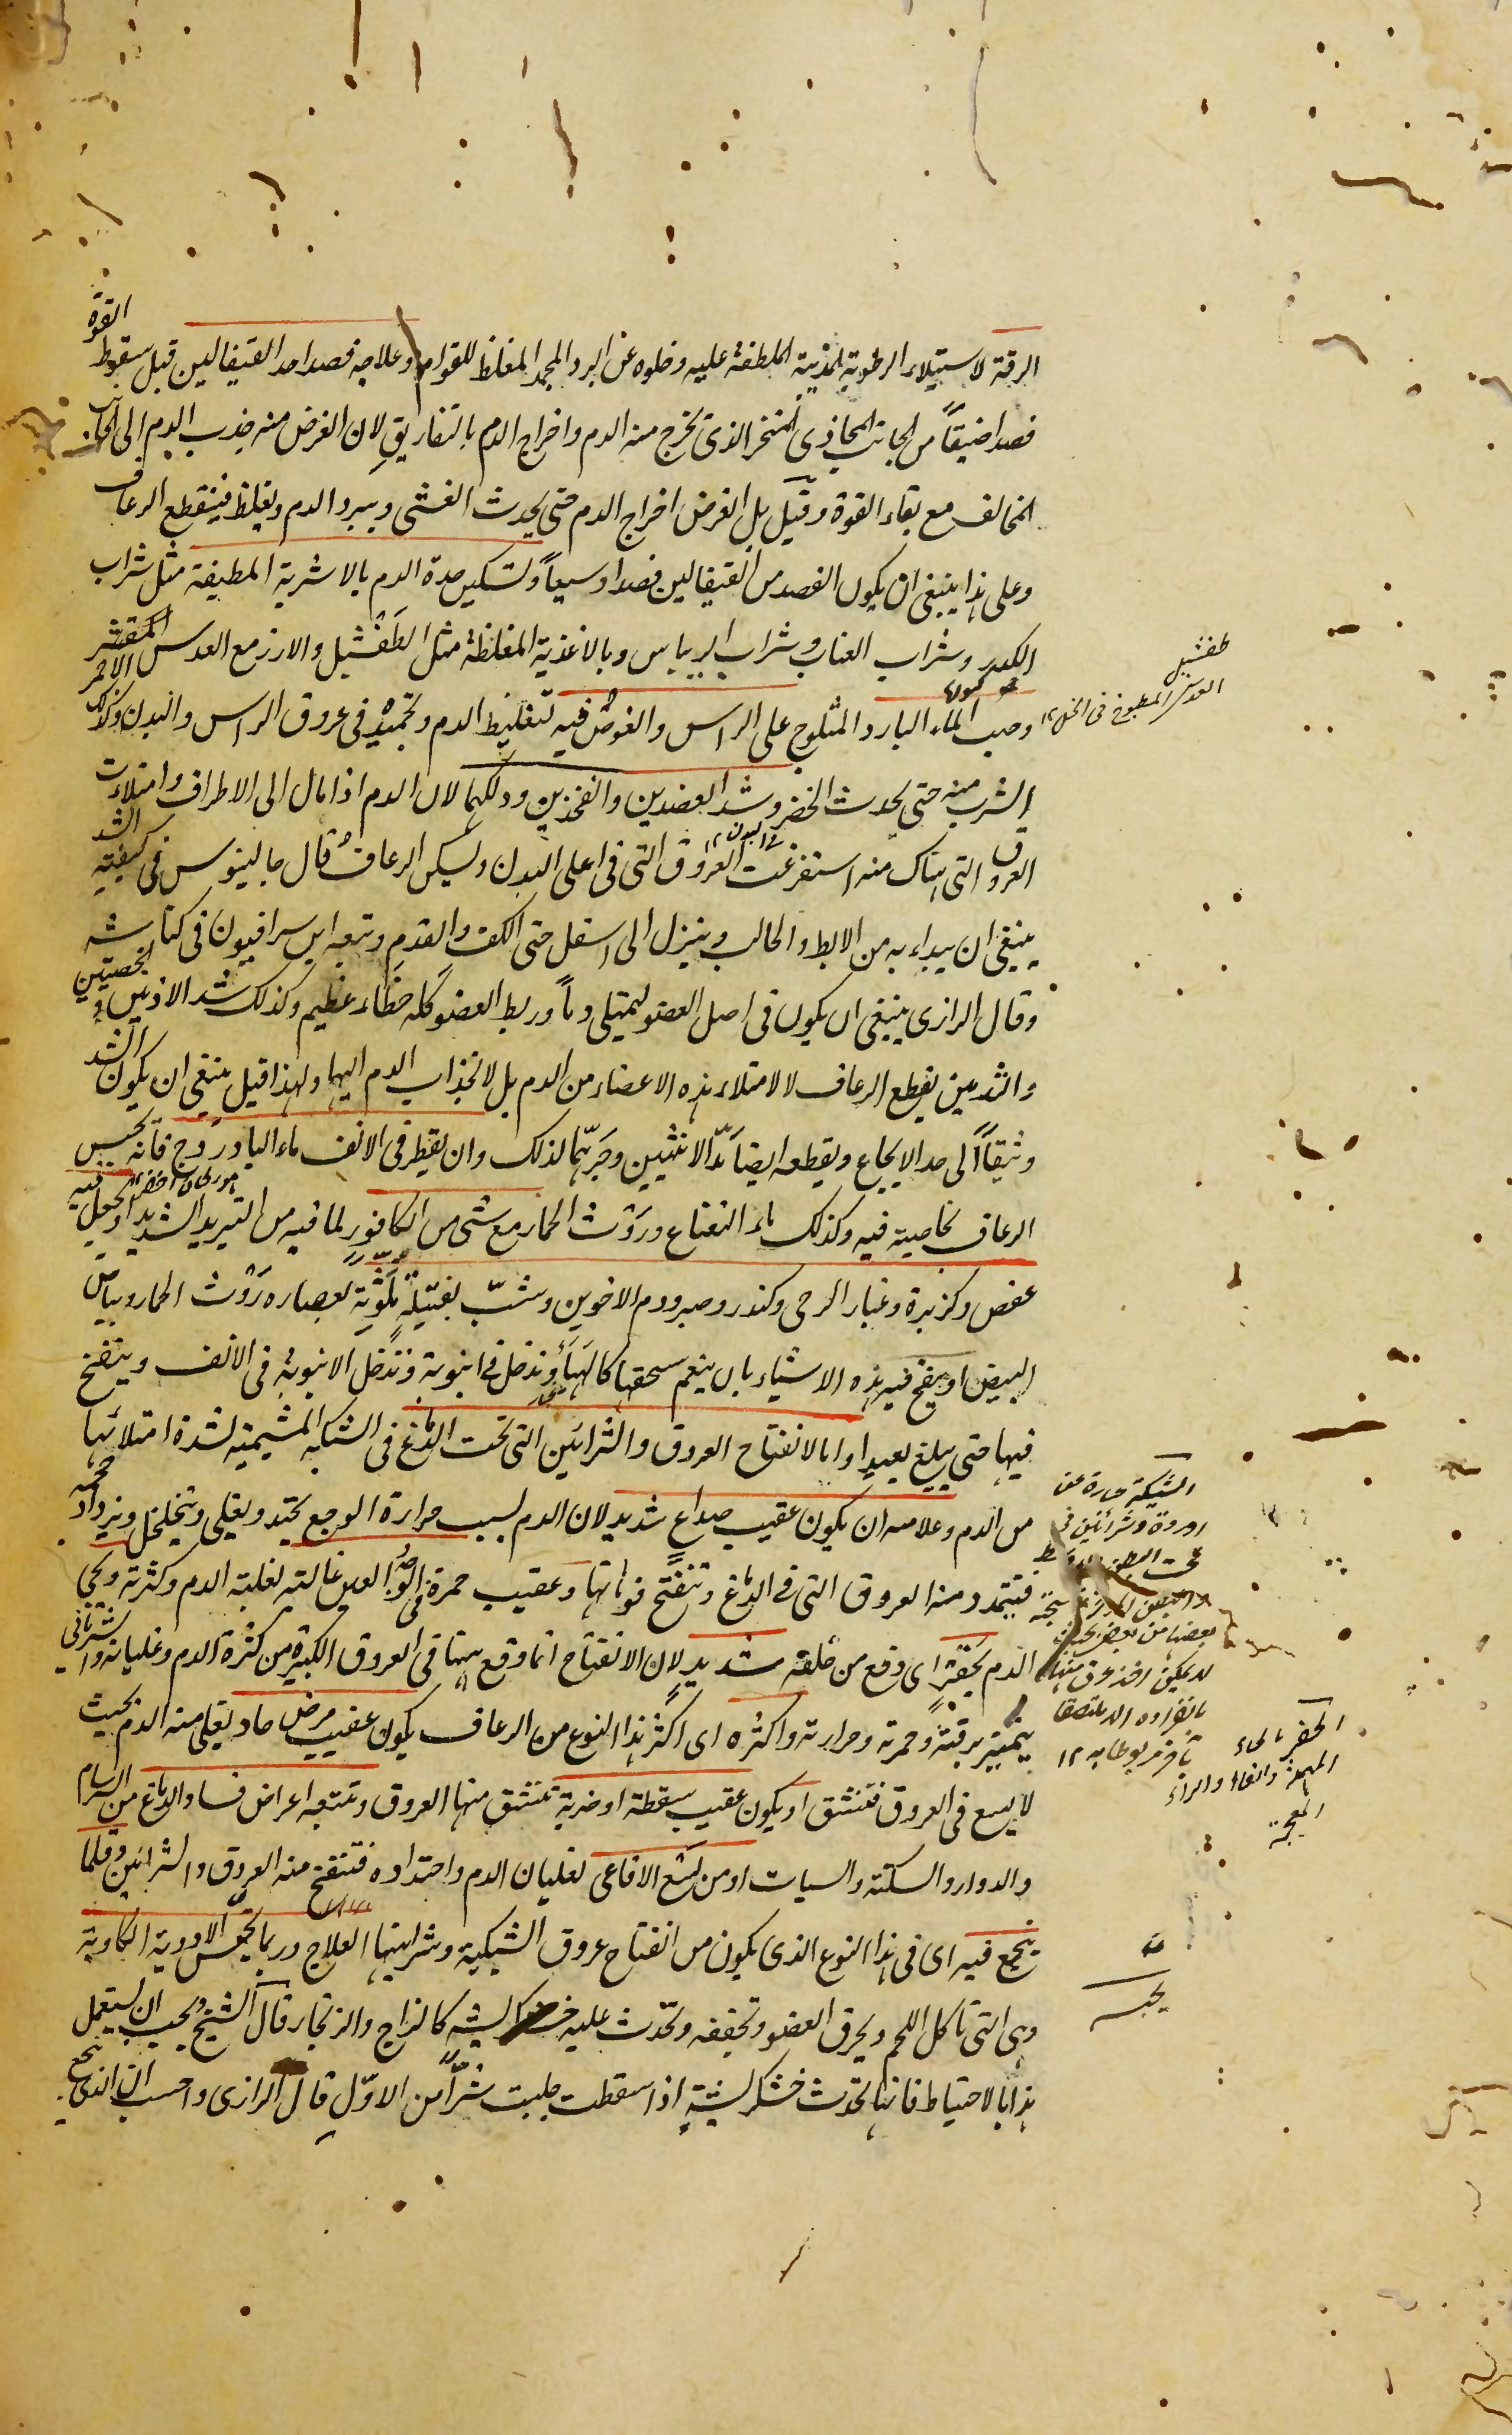 الرقة لاستيلاء الرطوبة المذيبة الملطفة عليه وخلوه عن البرد المجمد المغلظ للقوام وعلاجه فصد احد القيفالين قبل سقوط القوة
فصدا ضيقاً من الجانب المحاذى للمنخر الذى يخرج منه الدم واخراج الدم بالتفاريق لان الغرض منه جذب الدم الى الجانب
المخالف مع بقاء القوة وقيل بل الغرض اخراج الدم حتى يحدث الغشى ويبرد الدم ويغلظ فينقطع الرعاف
وعلى هذا ينبغى ان يكون الفصد من القيفالين فصدا وسيعاً وتسكين حدة الدم بالاشربة المطيفة مثل شراب
الكدر وشراب العناب وشراب الريباس وبالاغذية المغلظة مثل الطفشيل والارز مع العدس المقشر الاحمر
وصب الماء البارد المثلوج على الراس والغوص فيه لتغليظ الدم وتجميده فى عروق الراس والبدن وكذلك
الشرب منه حتى يحدث الخضر وشد العضدين والفخذين ودلكهما لان الدم اذا مال الى الاطراف وامتلأت
العروق التى هناك منه استفرغت العروق التى فى اعلى البدن ويسكن الرعاف قال جالينوس فى كيفية الشد
ينبغى ان يبداء به من الابط والحالب وينزل الى اسفل حتى الكف والقدم وتبعه ابن سرافيون فى كناشه
وقال الرازى ينبغى ان يكون فى اصل العضو ليمتلى دماً وربط العضو كله خطاء عظيم وكذلك شد الاذنين والخصيتين
والثديين يقطع الرعاف لا لامتلاء هذه الاعضاء من الدم بل لانجذاب الدم اليها ولهذا قيل ينبغى ان يكون الشد
وثيقاً الى حد الايجاع ويقطعه ايضاً مد الانثيين وجرهما لذلك وان يقطر فى الانف ماء البادروج فانه يحبس
الرعاف بخاصية فيه وكذلك ماء النعناع وروث الحمار مع شئ من الكافور لما فيه من التبريد الشديد او يجعل فيه
عفص وكزبرة وغبار الرحى وكندر وصبر ودم الاخوين وشب بفتيلة ملوثة بعصارة روث الحمار وبياض
البيض او ينفخ فيه هذه الاشياء بان ينعم سحقها كالهباء وتدخل فى انبوبة وتدخل الانبوبة فى الانف وينفخ
فيها حتى يبلغ بعيدا واما لانفتاح العروق والشرائين التى تحت الدماغ فى الشبكة المشيمية لشدة امتلائها
من الدم وعلامته ان يكون عقيب صداع شديد لان الدم بسبب حرارة الوجع يحتد ويغلى ويتخلخل ويزداد حجمه
فيتمدد منه العروق التى فى الدماغ وتنفتح فوهاتها وعقيب حمرة فى الوجه العين غالبة لغلبة الدم وكثرته ويجئ
الدم بحفز اى دفع من خلفه شديد لان الانفتاح انما وقع ههنا فى العروق الكبيرة من كثرة الدم وغليانه والشريانى
يتميز برقته وحمرته وحرارته واكثره اى اكثر هذا النوع من الرعاف يكون عقيب مرض حاد يغلى منه الدم بحيث
لا يسع فى العروق فتنشق او يكون عقيب سقطة او ضربة تنشق منها العروق وتتبعه اعراض فساد الدماغ من السرسام
والدوار والسكتة والسبات او من لسع الافاعى لغليان الدم واحتداده فتنفتح منه العروق والشرائين وقلما
ينجع فيه اى فى هذا النوع الذى يكون من انفتاح عروق الشبكية وشرايينها العلاج وربما يحبس الادوية الكاوية
وهى التى تاكل اللحم ويحرق العضو وتجففه وتحدث عليه خشكريشة كالزاج والزنجار قال الشيخ ويجب ان يستعمل
هذا بالاحتياط فانها تحدث خشكريشة اذا سقطت جلبت شراً من الاول قال الرازى واحسب ان الذى ينجع
طفشيل
العدس المطبوخ فى الخل ١٢
الشبكية عبارة عن
اوردة وشرائين فى
تحت البطن الاوسط
بعضها من بعض بحيث
لا يمكن اخذ عرق منها
بانفراده الا ملتصقا
بآخر مربوطا به ١٢
الحفز بالحاء
المهملة والفاء والزاء
المعجمة
يحبسه